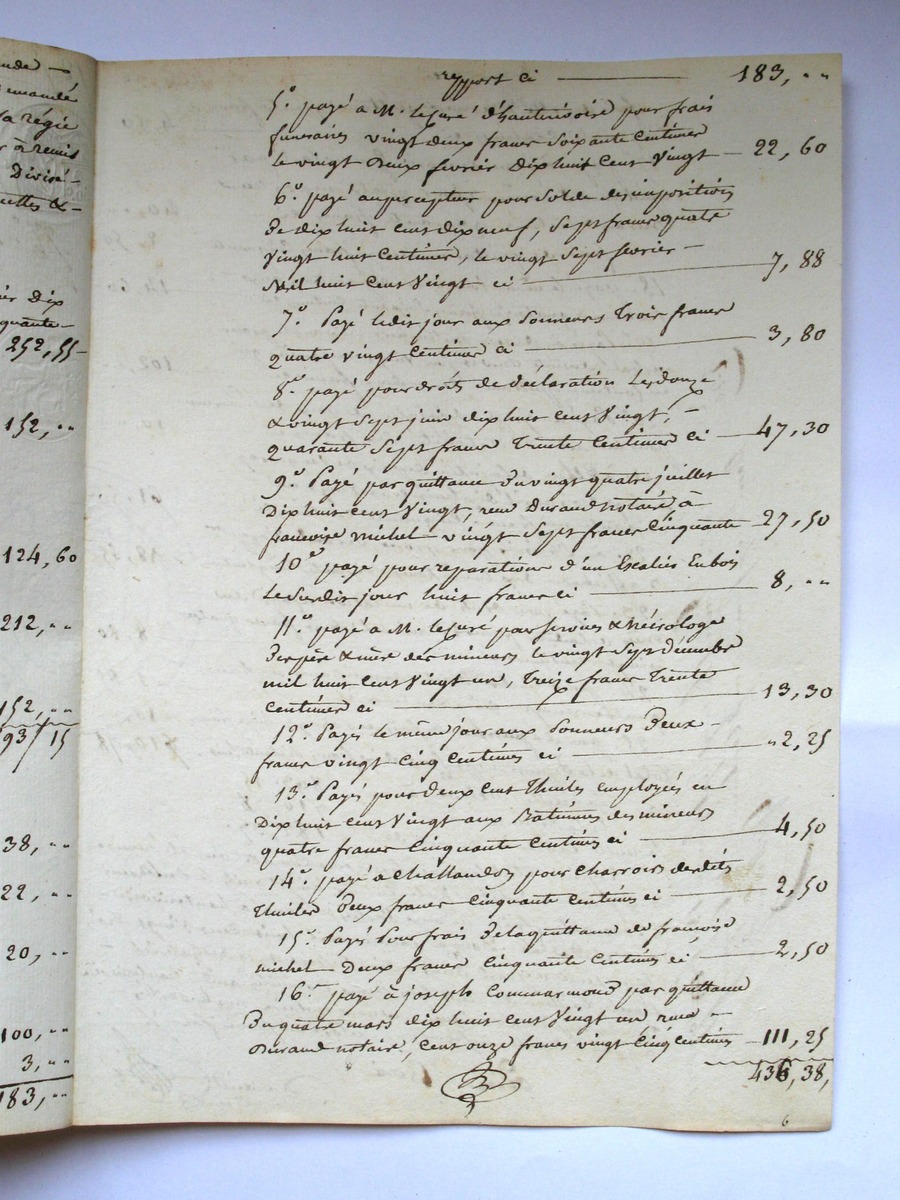 nde —
emandé
la régie
à remis
Divisé-
uettes &-
dix
quante-
252, 55-
152, ..
124, 60
212, ..
152, ..
93/15
38, ..
22, ..
20, ..
100, ..
3, ..
183, ..
report ci — 183, ..
5.º payé a M. le Curé d'hauterivoire pour frais
funeraires vingt deux francs Soixante Centimes
le vingt Deux fevrier dix huit Cent Vingt — 22, 60
6.º payé au percepteur pour Solde des impositions
De dix huit cent dix neuf, Sept francs quatre
Vingt huit Centimes, le vingt Sept fevrier —
Mil huit Cent Vingt ci — 7, 88
7.º Payé ledit jour aux Sonneurs Trois francs
quatre vingt Centimes ci — 3, 80
8.º payé pour droits de déclaration Les douze
& vingt Sept juin dix huit Cent Vingt, —
quarante Sept francs Trente Centimes ci — 47, 30
9.º Payé par quittance Du vingt quatre juillet
Dix huit Cent Vingt, reçue Durand notaire, à
francoise michel vingt Sept francs Cinquante — 27, 50
10.º payé pour reparations d'un Escalier En bois
Le Susdit jour huit francs ci — 8, ..
11.º payé a M. le Curé pour Services & Nécrologe
Des père & mère des mineurs le vingt Sept Décembre
mil huit Cent Vingt un, Treize francs Trente
Centimes ci — 13, 30
12.º Payés le même jour aux Sonneurs Deux —
francs vingt Cinq Centimes ci — " 2, 25
13.º Payés pour Deux Cent Thuiles Employées en
Dix huit Cent Vingt aux Batimes des mineurs
quatre francs Cinquante Centimes ci — 4, 50
14.º payé a Challandon pour Charrois desdits
Thuiles Deux francs Cinquante Centimes ci — 2, 50
15.º Payés Pour frais De la quittance de francoise
michel Deux francs Cinquante Centimes ci — 2, 50
16.º payé à joseph Commarmond par quittance
Du quatre mars dix huit Cent Vingt un reçue —
Durand notaire, Cent onze francs vingt Cinq Centimes — 111, 25
436, 38,
6